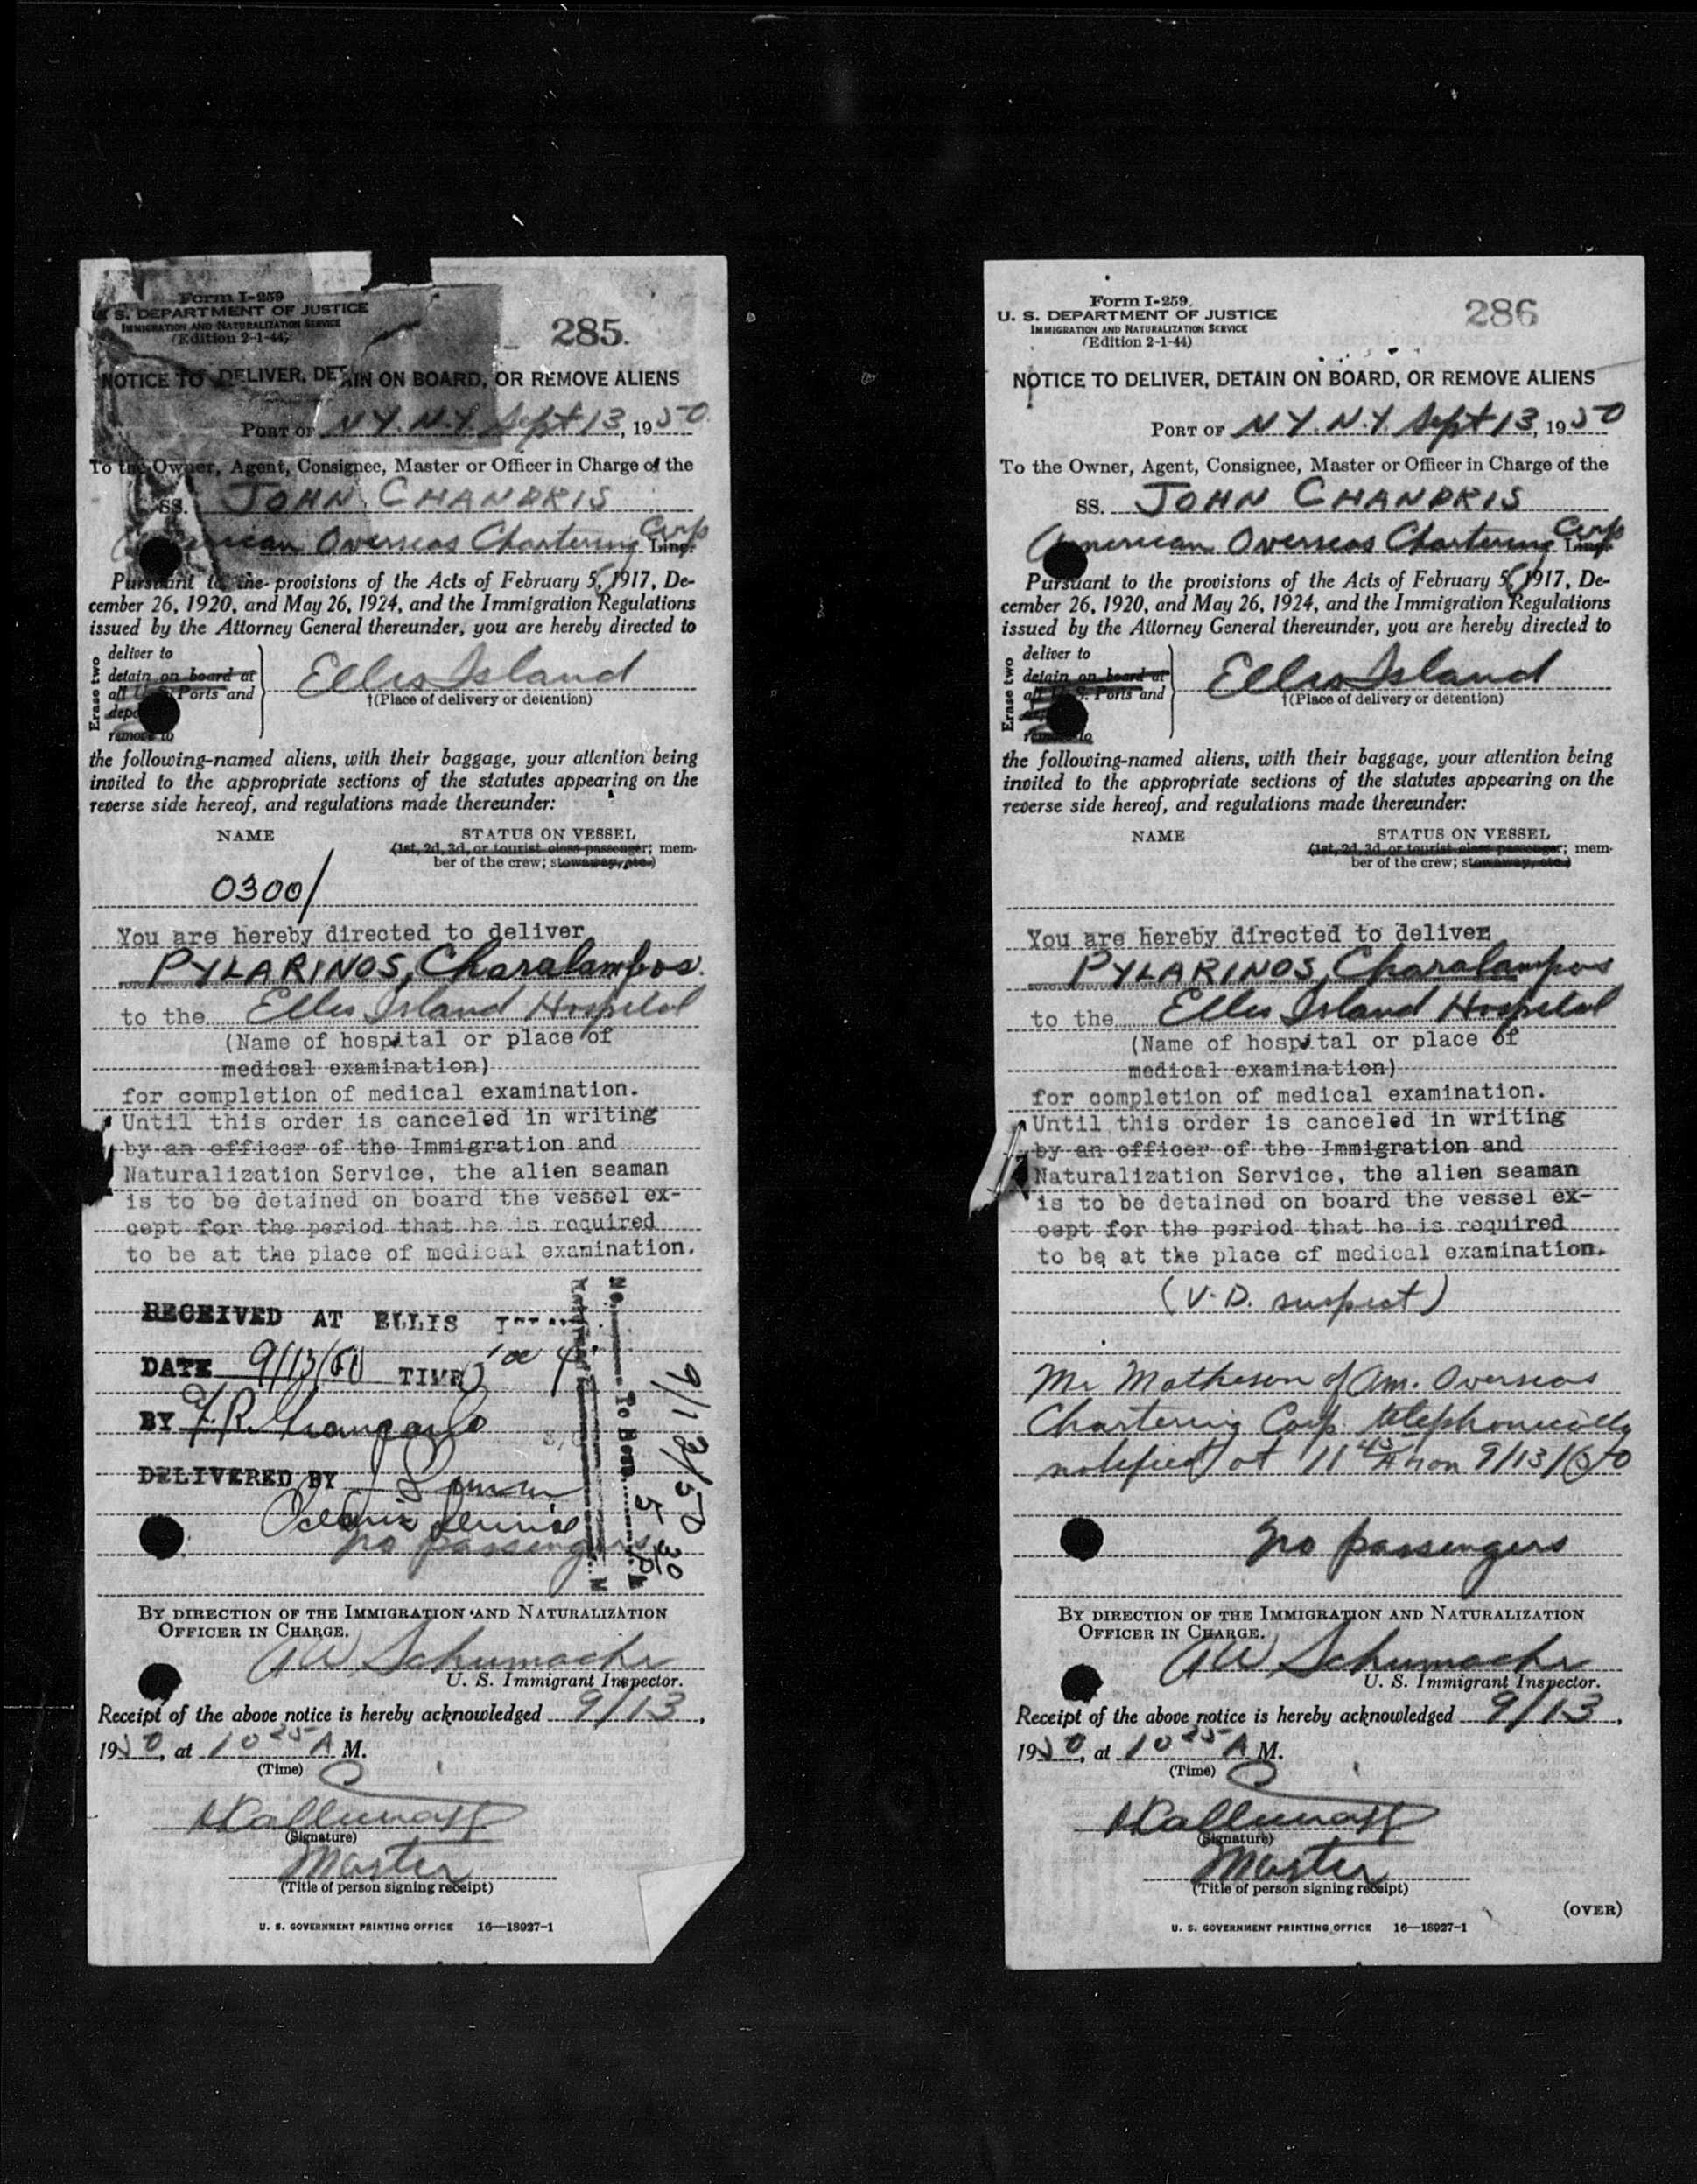 Form I-259
U. S. DEPARTMENT OF JUSTICE
IMMIGRATION AND NATURALIZATION SERVICE
(Edition 2-1-44)
285.
NOTICE TO DELIVER, DETAIN ON BOARD, OR REMOVE ALIENS
PORT OF N.Y. N.Y. Sept 13, 1950
To the Owner, Agent, Consignee, Master or Officer in Charge of the
SS. JOHN CHANDRIS
American Overseas Chartering Corp Line.
Pursuant to the provisions of the Acts of February 5, 1917, De-
cember 26, 1920, and May 26, 1924, and the Immigration Regulations
issued by the Attorney General thereunder, you are hereby directed to
Erase two
deliver to
detain on board at
all U. S. Ports and
remove to
Ellis Island
†(Place of delivery or detention)
the following-named aliens, with their baggage, your attention being
invited to the appropriate sections of the statutes appearing on the
reverse side hereof, and regulations made thereunder:
NAME STATUS ON VESSEL
(1st, 2d, 3d, or tourist class passenger; mem-
ber of the crew; stowaway, etc.)
0300/
You are hereby directed to deliver
PYLARINOS, Charalambos.
to the Ellis Island Hospital
(Name of hospital or place of
medical examination)
for completion of medical examination.
Until this order is canceled in writing
by an officer of the Immigration and
Naturalization Service, the alien seaman
is to be detained on board the vessel ex-
cept for the period that he is required
to be at the place of medical examination.
RECEIVED AT ELLIS
DATE 9/13/50 TIME
BY
DELIVERED BY
no passengers
To Hosp.
9/13/50
5 30
BY DIRECTION OF THE IMMIGRATION AND NATURALIZATION
OFFICER IN CHARGE.
AW Schumacher
U. S. Immigrant Inspector.
Receipt of the above notice is hereby acknowledged 9/13,
1950, at 10 25 A M.
(Time)
(Signature)
Master
(Title of person signing receipt)
U. S. GOVERNMENT PRINTING OFFICE 16—18927-1
Form I-259
U. S. DEPARTMENT OF JUSTICE
IMMIGRATION AND NATURALIZATION SERVICE
(Edition 2-1-44)
286
NOTICE TO DELIVER, DETAIN ON BOARD, OR REMOVE ALIENS
PORT OF N.Y. N.Y. Sept 13, 1950
To the Owner, Agent, Consignee, Master or Officer in Charge of the
SS. JOHN CHANDRIS
American Overseas Chartering Corp Line.
Pursuant to the provisions of the Acts of February 5, 1917, De-
cember 26, 1920, and May 26, 1924, and the Immigration Regulations
issued by the Attorney General thereunder, you are hereby directed to
Erase two
deliver to
detain on board at
all U. S. Ports and
remove to
Ellis Island
†(Place of delivery or detention)
the following-named aliens, with their baggage, your attention being
invited to the appropriate sections of the statutes appearing on the
reverse side hereof, and regulations made thereunder:
NAME STATUS ON VESSEL
(1st, 2d, 3d, or tourist class passenger; mem-
ber of the crew; stowaway, etc.)
You are hereby directed to deliver
PYLARINOS, Charalampos
to the Ellis Island Hospital
(Name of hospital or place of
medical examination)
for completion of medical examination.
Until this order is canceled in writing
by an officer of the Immigration and
Naturalization Service, the alien seaman
is to be detained on board the vessel ex-
cept for the period that he is required
to be at the place of medical examination.
(V.D. suspect)
Mr Matheson of Am. Overseas
Chartering Corp. telephonically
notified at 11 45 A M on 9/13/50
no passengers
BY DIRECTION OF THE IMMIGRATION AND NATURALIZATION
OFFICER IN CHARGE.
AW Schumacher
U. S. Immigrant Inspector.
Receipt of the above notice is hereby acknowledged 9/13,
1950, at 10 25 A M.
(Time)
(Signature)
Master
(Title of person signing receipt)
(OVER)
U. S. GOVERNMENT PRINTING OFFICE 16—18927-1